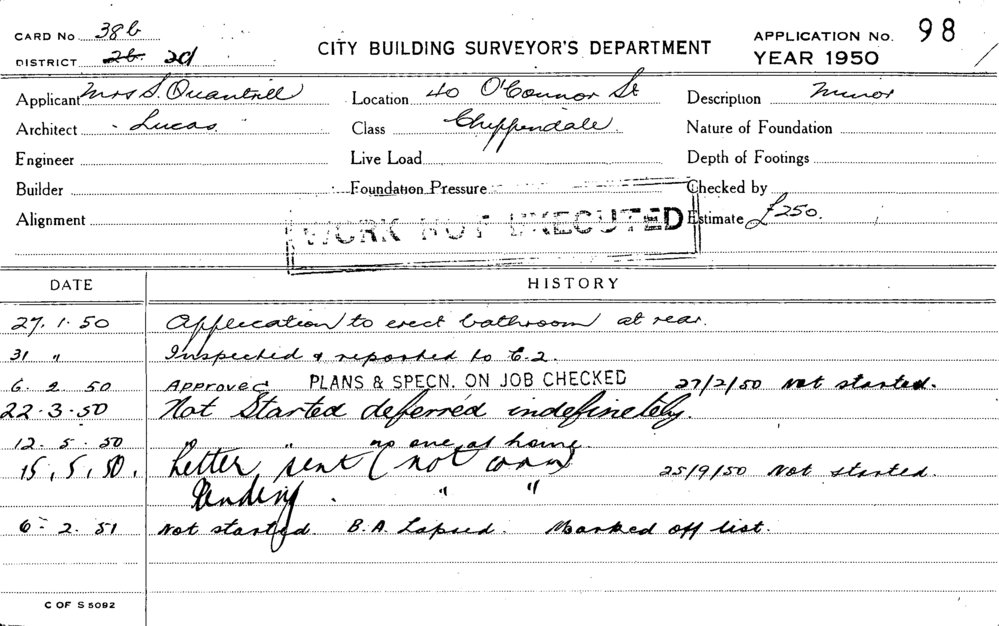 CARD No 38b
DISTRICT 2b. 2d
CITY BUILDING SURVEYOR'S DEPARTMENT
APPLICATION No. 98
YEAR 1950
Applicant Mrs S. Quantrill Location 40 O'Connor St Description Minor
Architect Lucas. Class Chippendale. Nature of Foundation
Engineer Live Load Depth of Footings
Builder Foundation Pressure Checked by
Alignment WORK NOT EXECUTED Estimate £250.
DATE HISTORY
27. 1. 50 Application to erect bathroom at rear.
31 " Inspected & reported to C.2.
6. 2. 50 Approved PLANS & SPECN. ON JOB CHECKED 27/2/50 Not started.
22.3.50 Not Started deferred indefinetely.
12. 5. 50 " no one at home.
15, 5, 50, Letter sent (not com) 25/9/50 Not started.
Pending . " "
6. 2. 51 Not started. B.A. Lapsed. Marked off list.
C OF S 5092